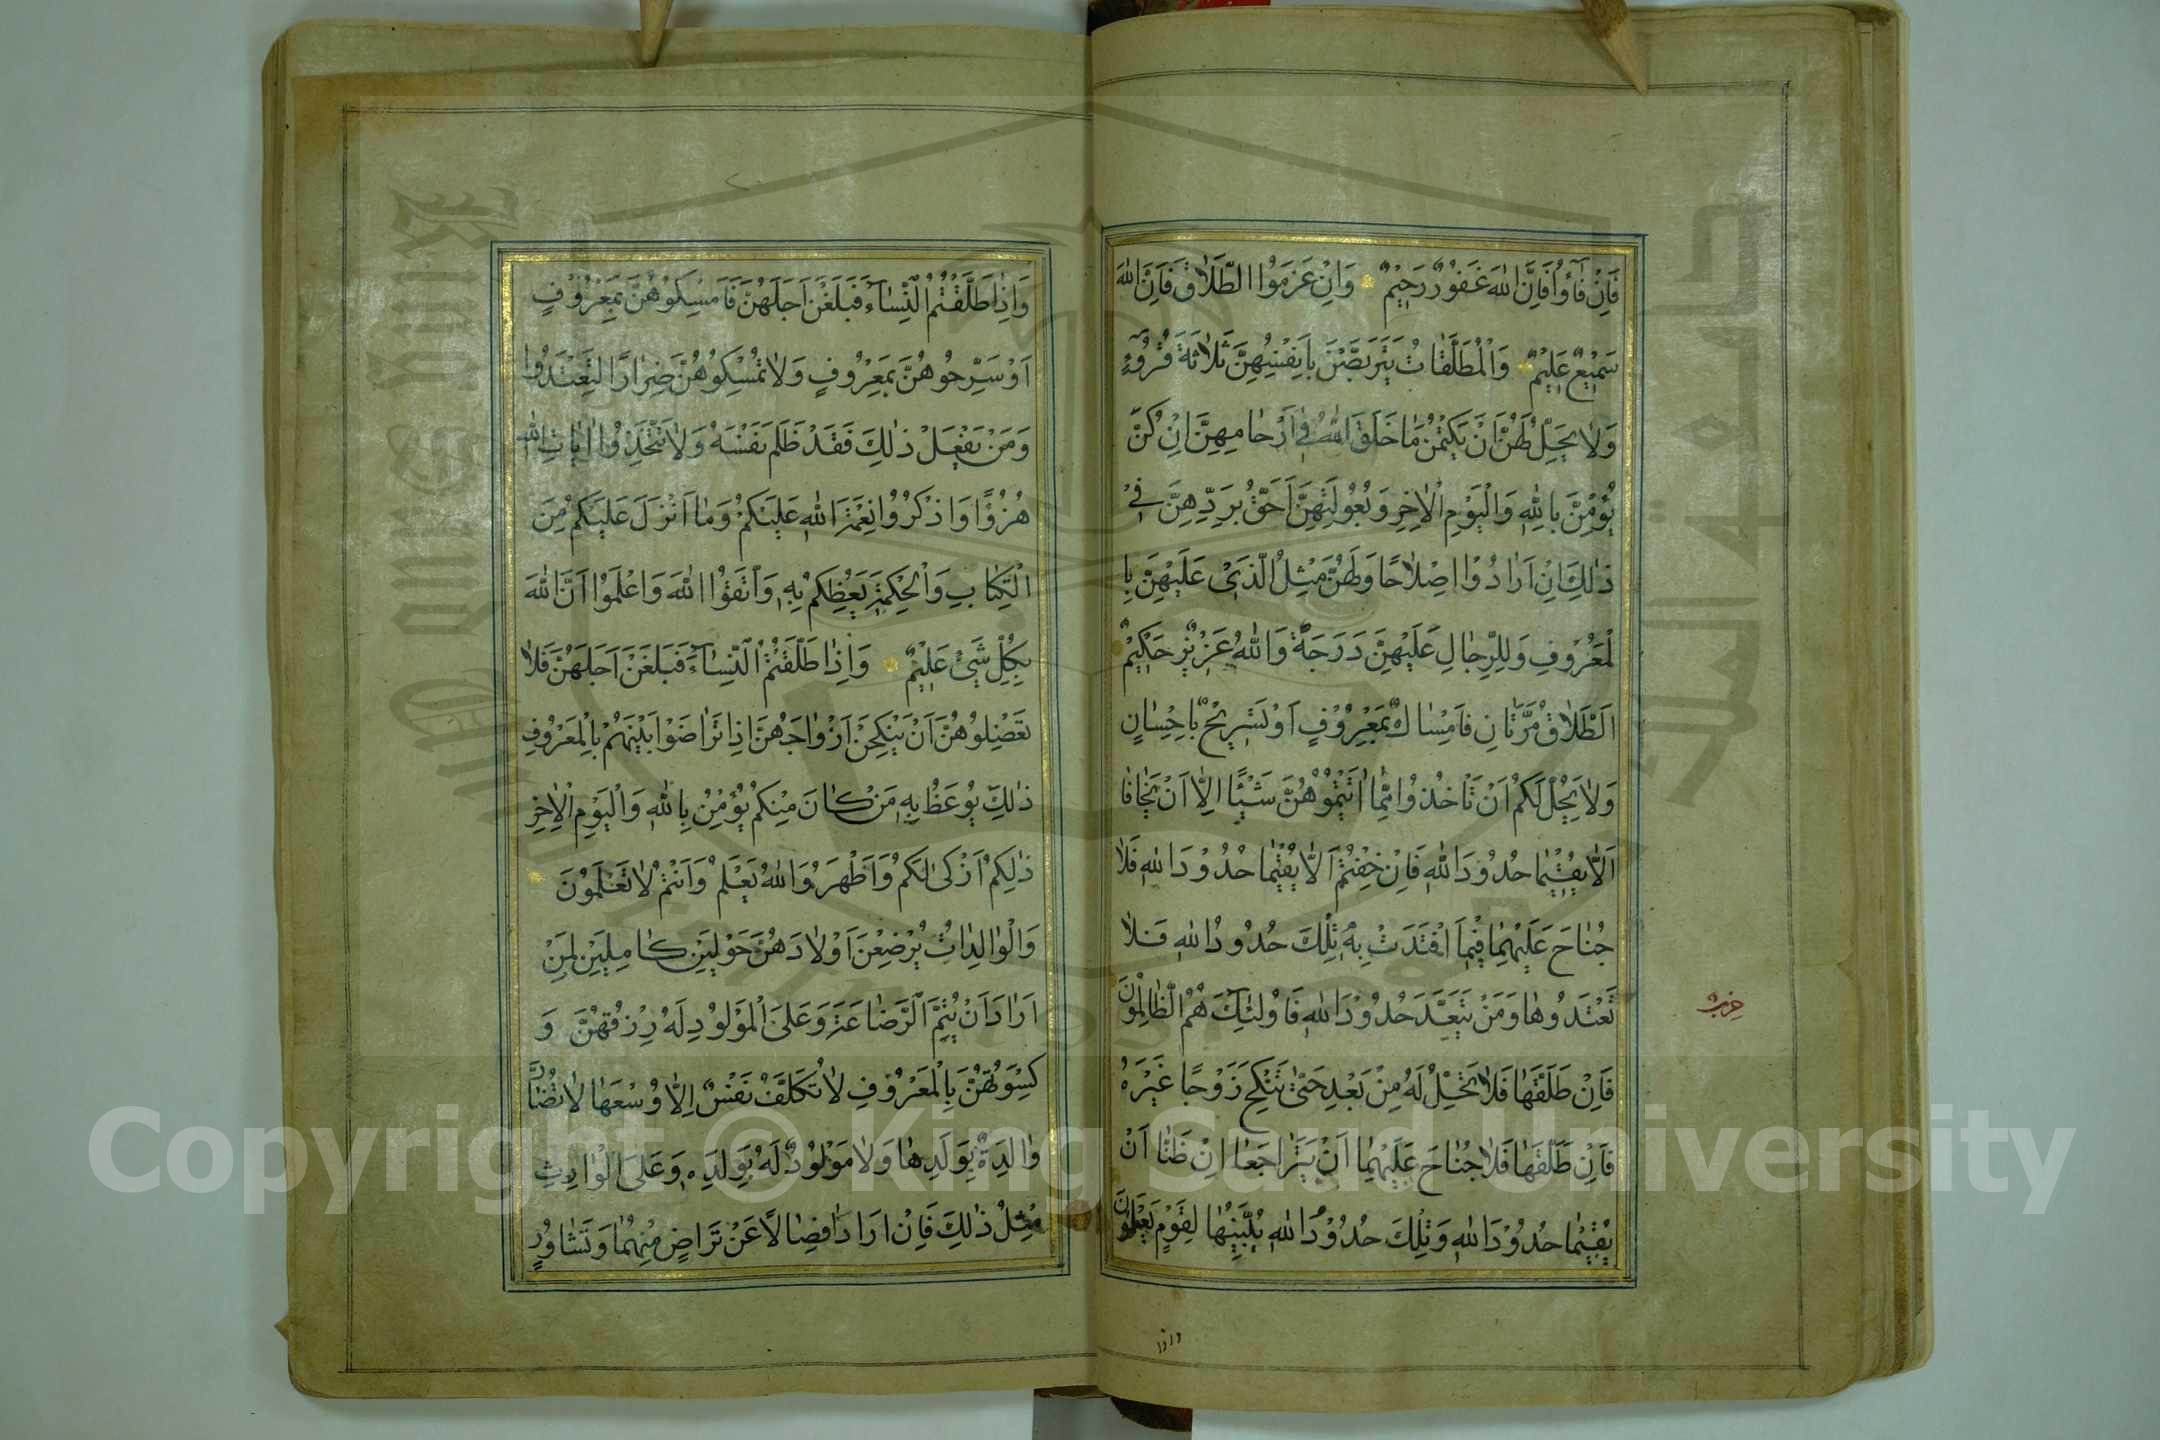 فَاِنْ فَآؤُ فَاِنَّ اللّٰهَ غَفُوْرٌ رَحِيْمٌ وَاِنْ عَزَمُوا الطَّلَاقَ فَاِنَّ اللّٰهَ
سَمِيْعٌ عَلِيْمٌ وَالْمُطَلَّقَاتُ يَتَرَبَّصْنَ بِاَنْفُسِهِنَّ ثَلَاثَةَ قُرُوٓءٍ
وَلَا يَحِلُّ لَهُنَّ اَنْ يَكْتُمْنَ مَا خَلَقَ اللّٰهُ فِي اَرْحَامِهِنَّ اِنْ كُنَّ
يُؤْمِنَّ بِاللّٰهِ وَالْيَوْمِ الْاٰخِرِ وَبُعُوْلَتُهُنَّ اَحَقُّ بِرَدِّهِنَّ فِيْ
ذٰلِكَ اِنْ اَرَادُوْا اِصْلَاحًا وَلَهُنَّ مِثْلُ الَّذِيْ عَلَيْهِنَّ بِا
لْمَعْرُوفِ وَلِلرِّجَالِ عَلَيْهِنَّ دَرَجَةٌ وَاللّٰهُ عَزِيْزٌ حَكِيْمٌ
اَلطَّلَاقُ مَرَّتَانِ فَاِمْسَاكٌ بِمَعْرُوْفٍ اَوْ تَسْرِيْحٌ بِاِحْسَانٍ
وَلَا يَحِلُّ لَكُمْ اَنْ تَاْخُذُوا مِمَّا اٰتَيْتُمُوْهُنَّ شَيْئًا اِلَّا اَنْ يَخَافَا
اَلَّا يُقِيْمَا حُدُوْدَ اللّٰهِ فَاِنْ خِفْتُمْ اَلَّا يُقِيْمَا حُدُوْدَ اللّٰهِ فَلَا
جُنَاحَ عَلَيْهِمَا فِيْمَا افْتَدَتْ بِهٖ تِلْكَ حُدُودُ اللّٰهِ فَلَا
تَعْتَدُوهَا وَمَنْ يَتَعَدَّ حُدُوْدَ اللّٰهِ فَاُولٰئِكَ هُمُ الظَّالِمُوْنَ
فَاِنْ طَلَّقَهَا فَلَا تَحِلُّ لَهُ مِنْ بَعْدُ حَتّٰى تَنْكِحَ زَوْجًا غَيْرَهُ
فَاِنْ طَلَّقَهَا فَلَا جُنَاحَ عَلَيْهِمَا اَنْ يَتَرَاجَعَا اِنْ ظَنَّا اَنْ
يُقِيْمَا حُدُوْدَ اللّٰهِ وَتِلْكَ حُدُوْدُ اللّٰهِ يُبَيِّنُهَا لِقَوْمٍ يَعْلَمُوْنَ
حزب
واذا
وَاِذَا طَلَّقْتُمُ النِّسَآءَ فَبَلَغْنَ اَجَلَهُنَّ فَاَمْسِكُوْهُنَّ بِمَعْرُوْفٍ
اَوْ سَرِّحُوهُنَّ بِمَعْرُوفٍ وَلَا تُمْسِكُوْهُنَّ ضِرَارًا لِتَعْتَدُوا
وَمَنْ يَفْعَلْ ذٰلِكَ فَقَدْ ظَلَمَ نَفْسَهُ وَلَا تَتَّخِذُوْا اٰيَاتِ اللّٰهِ
هُزُوًا وَاذْكُرُوْا نِعْمَةَ اللّٰهِ عَلَيْكُمْ وَمَا اَنْزَلَ عَلَيْكُمْ مِنَ
الْكِتَابِ وَالْحِكْمَةِ يَعِظُكُمْ بِهٖ وَاتَّقُوْا اللّٰهَ وَاعْلَمُوْا اَنَّ اللّٰهَ
بِكُلِّ شَيْءٍ عَلِيْمٌ وَاِذَا طَلَّقْتُمُ النِّسَآءَ فَبَلَغْنَ اَجَلَهُنَّ فَلَا
تَعْضُلُوهُنَّ اَنْ يَنْكِحْنَ اَزْوَاجَهُنَّ اِذَا تَرَاضَوْا بَيْنَهُمْ بِالْمَعْرُوفِ
ذٰلِكَ يُوعَظُ بِهٖ مَنْ كَانَ مِنْكُمْ يُؤْمِنُ بِاللّٰهِ وَالْيَوْمِ الْاٰخِرِ
ذٰلِكُمْ اَزْكٰى لَكُمْ وَاَطْهَرُ وَاللّٰهُ يَعْلَمُ وَاَنْتُمْ لَا تَعْلَمُوْنَ
وَالْوَالِدَاتُ يُرْضِعْنَ اَوْلَادَهُنَّ حَوْلَيْنِ كَامِلَيْنِ لِمَنْ
اَرَادَ اَنْ يُتِمَّ الرَّضَاعَةَ وَعَلَى الْمَوْلُوْدِ لَهُ رِزْقُهُنَّ وَ
كِسْوَتُهُنَّ بِالْمَعْرُوفِ لَا تُكَلَّفُ نَفْسٌ اِلَّا وُسْعَهَا لَا تُضَارَّ
وَالِدَةٌ بِوَلَدِهَا وَلَا مَوْلُوْدٌ لَهُ بِوَلَدِهٖ وَعَلَى الْوَارِثِ
مِثْلُ ذٰلِكَ فَاِنْ اَرَادَا فِصَالًا عَنْ تَرَاضٍ مِنْهُمَا وَتَشَاوُرٍ
Copyright © King Saud University